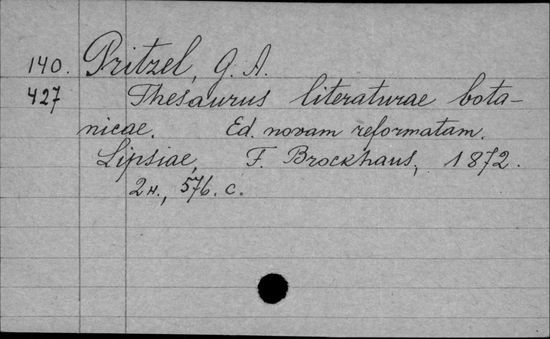 140. Pritzel, G. A.
427 Thesaurus literaturae bota-
nicae. Ed. novam reformatam.
Lipsiae, F. Brockhaus, 1872.
2 н., 576. с.